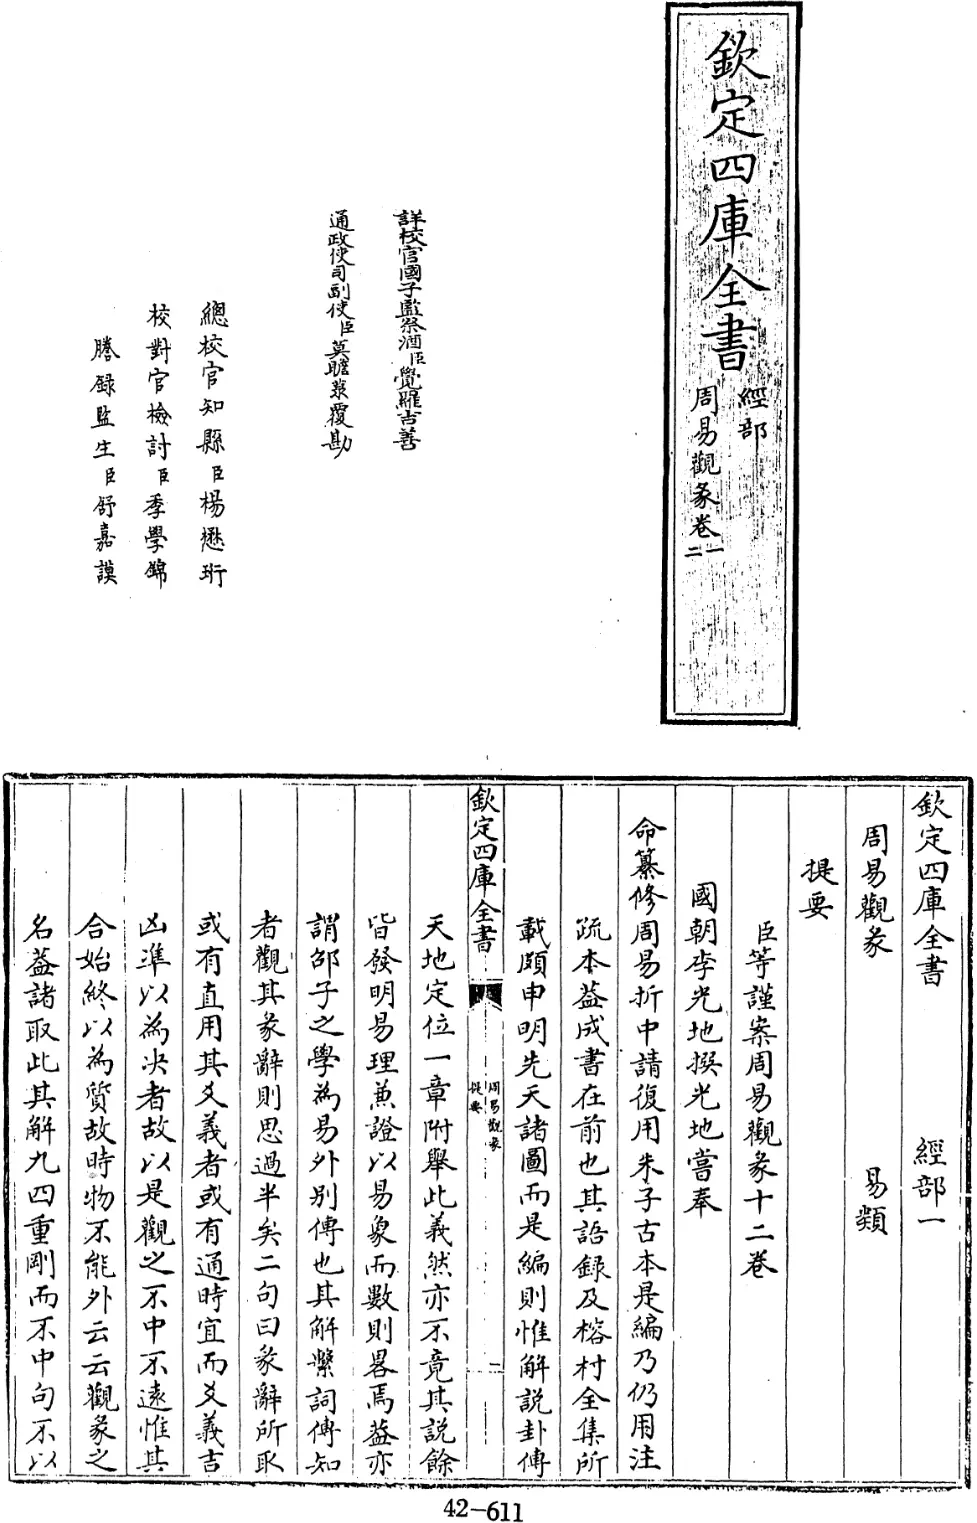 欽定四庫全書
經部
周易觀彖卷一二
詳校官國子監祭酒臣覺羅吉善
通政使司副使臣莫瞻菉覆勘
總校官知縣臣楊懋珩
校對官檢討臣季學錦
謄錄監生臣舒嘉謨
欽定四庫全書 經部一
周易觀彖 易類
提要
臣等謹案周易觀彖十二卷
國朝李光地撰光地嘗奉
命纂修周易折中請復用朱子古本是編乃仍用注
疏本蓋成書在前也其語録及榕村全集所
載頗申明先天諸圖而是編則惟解説卦傳
欽定四庫全書
周易觀彖
提要
二
天地定位一章附舉此義然亦不竟其説餘
皆發明易理兼證以易象而數則畧焉蓋亦
謂邵子之學為易外别傳也其解繫詞傳知
者觀其彖辭則思過半矣二句曰彖辭所取
或有直用其爻義者或有通時宜而爻義吉
凶準以為决者故以是觀之不中不遠惟其
合始終以為質故時物不能外云云觀彖之
名蓋諸取此其解九四重剛而不中句不以
42-611